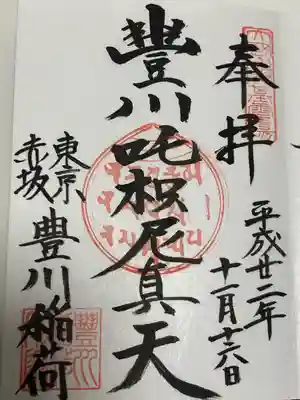 奉拝
平成廿二年
十一月十六日
豐川吒枳尼真天
東京
赤坂
豊川稲荷